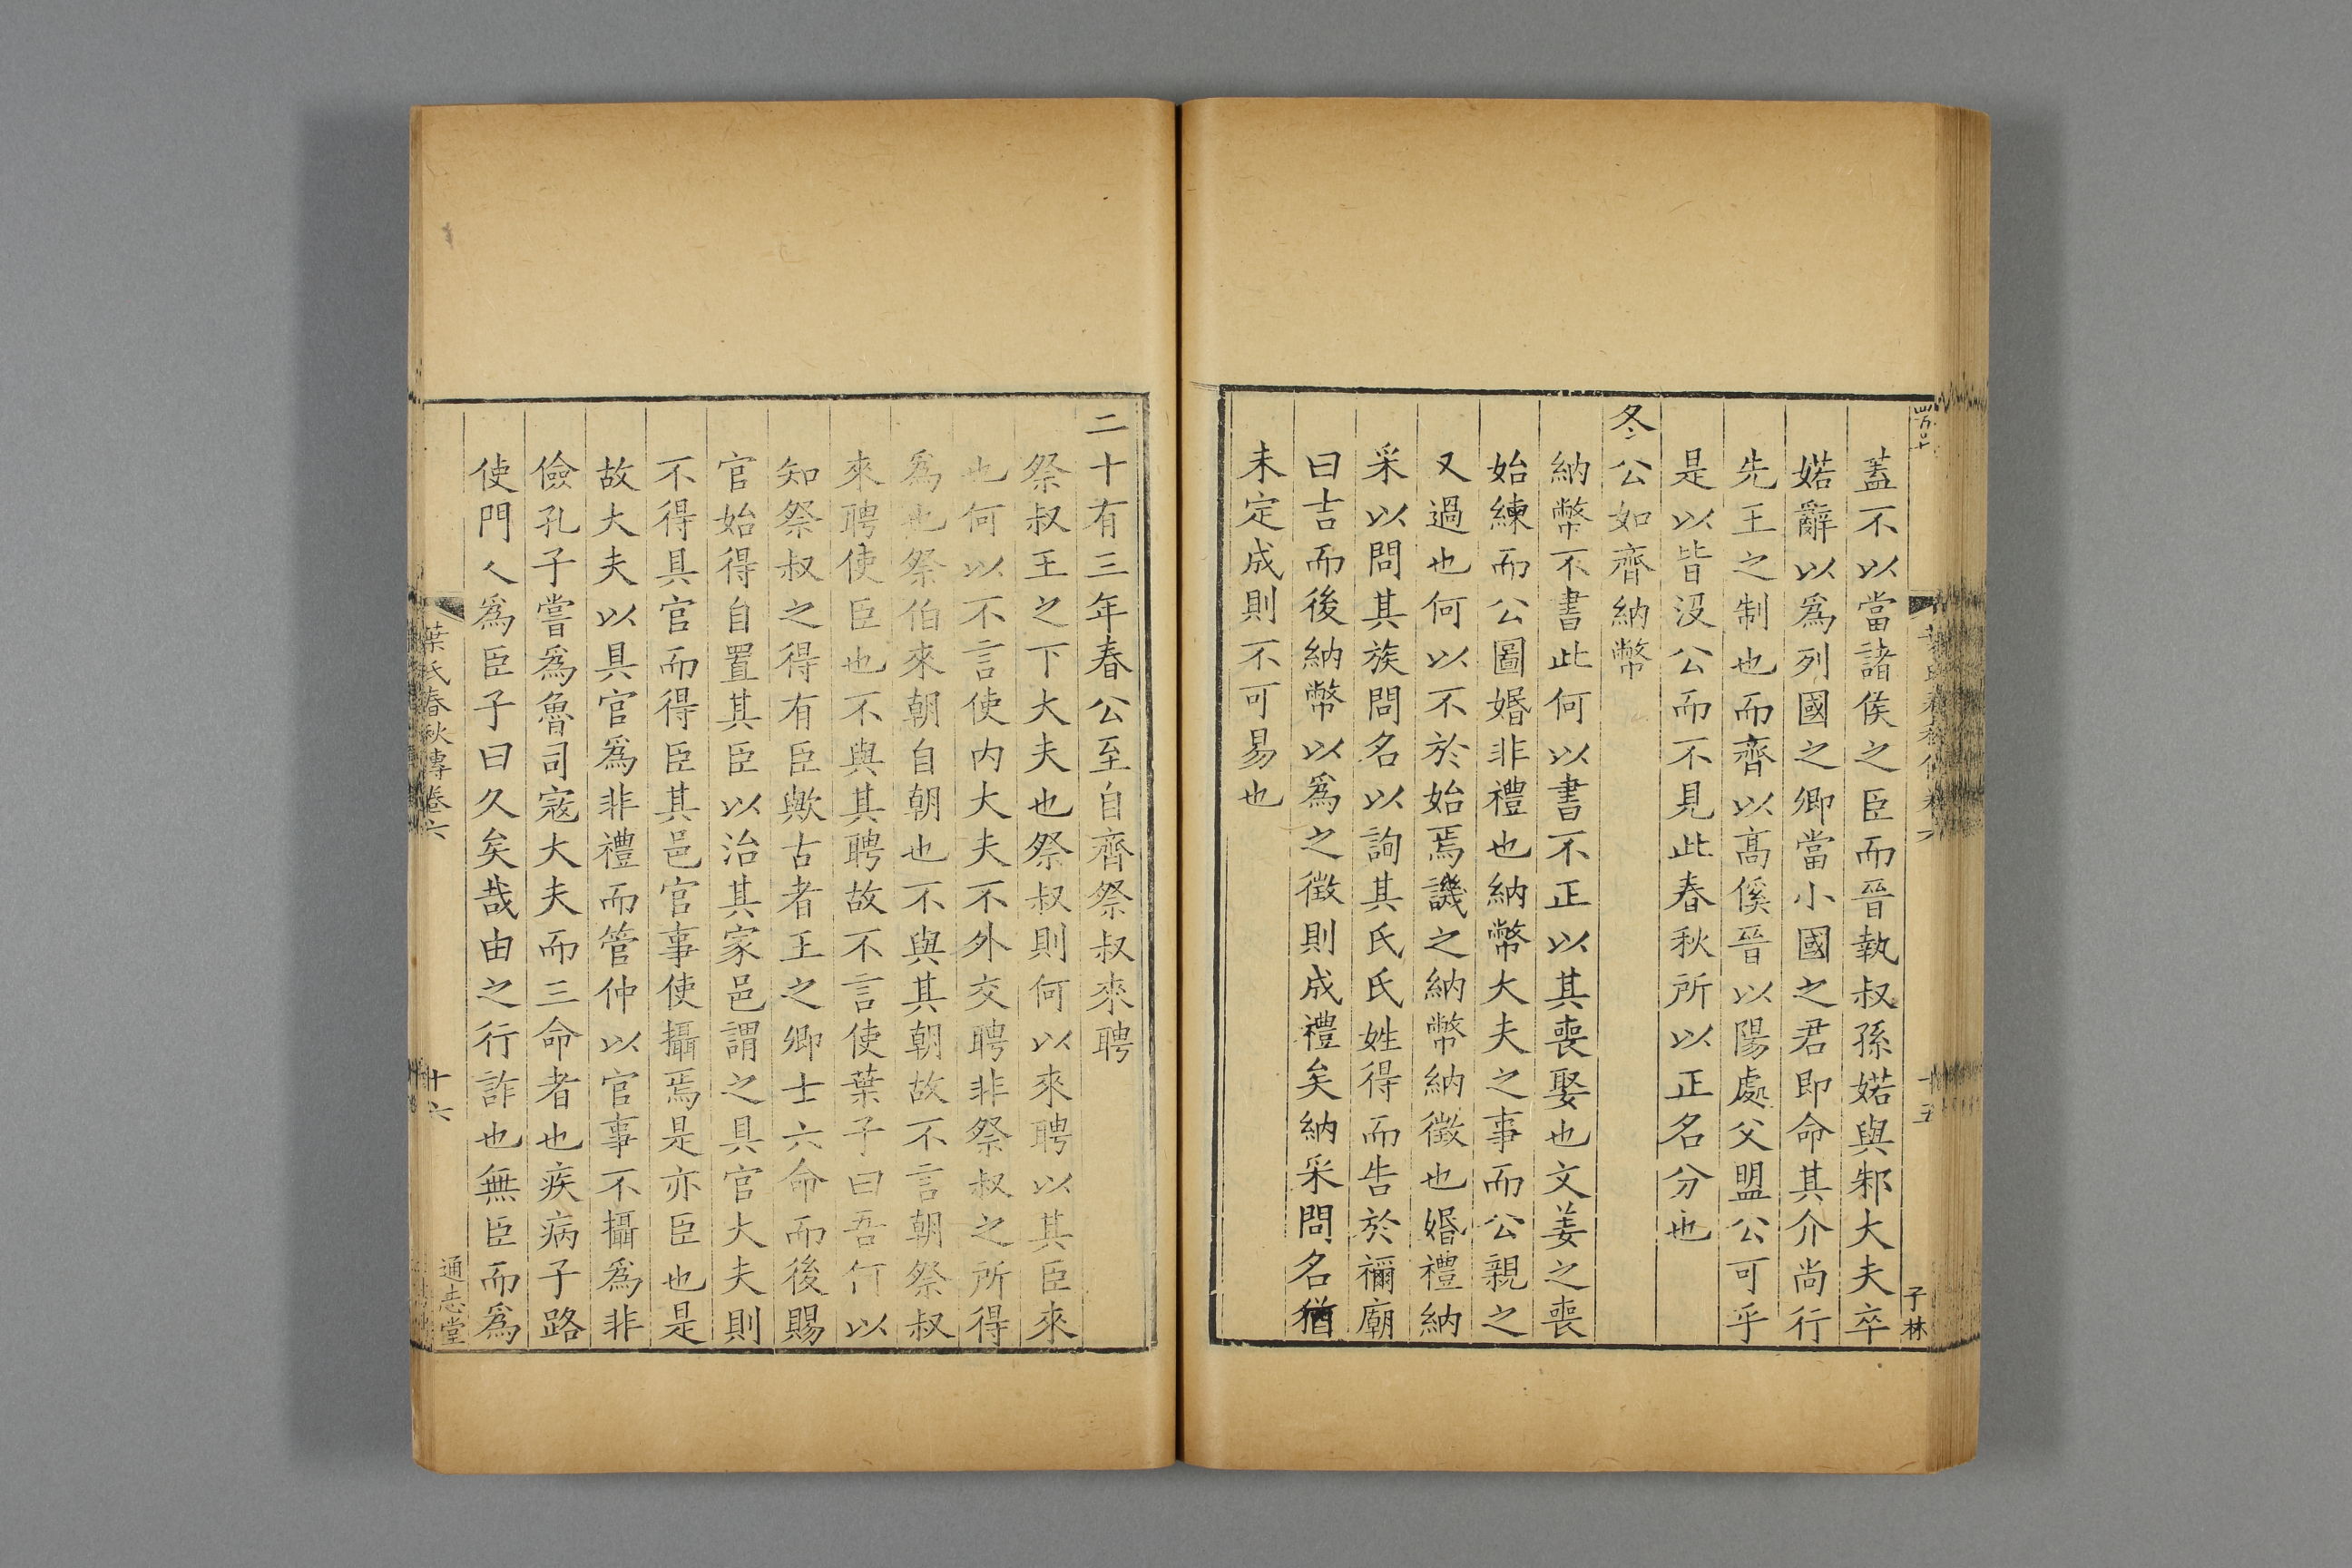 蓋不以當諸侯之臣而晉執叔孫婼與邾大夫卒
婼辭以爲列國之卿當小國之君即命其介尚行
先王之制也而齊以髙傒晉以陽處父盟公可乎
是以皆没公而不見此春秋所以正名分也
冬公如齊納幣
納幣不書此何以書不正以其喪娶也文姜之喪
始練而公圖婚非禮也納幣大夫之事而公親之
又過也何以不於始焉譏之納幣納徵也婚禮納
采以問其族問名以詢其氏氏姓得而告於禰廟
曰吉而後納幣以爲之徵則成禮矣納采問名猶
未定成則不可易也
十五
子林
二十有三年春公至自齊祭叔來聘
祭叔王之下大夫也祭叔則何以來聘以其臣來
也何以不言使内大夫不外交聘非祭叔之所得
爲也祭伯來朝自朝也不與其朝故不言朝祭叔
來聘使臣也不與其聘故不言使葉子曰吾何以
知祭叔之得有臣歟古者王之卿士六命而後賜
官始得自置其臣以治其家邑謂之具官大夫則
不得具官而得臣其邑官事使攝焉是亦臣也是
故大夫以具官爲非禮而管仲以官事不攝爲非
儉孔子嘗爲魯司寇大夫而三命者也疾病子路
使門人爲臣子曰久矣哉由之行詐也無臣而爲
葉氏春秋傳卷六
十六
通志堂